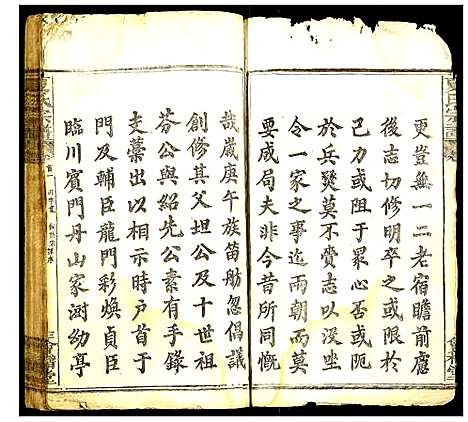 更豈無一二老宿瞻前慮
後志切修明卒之或限於
己力或阻于眾心否或阨
於兵燹莫不賫志以沒坐
令一家之事迄而朝而莫
要成局夫非今昔所同慨
哉歲庚午族笛舫忽倡議
創修其父坦公及十世祖
芬公與紹先公素有手錄
支藁出以相示時戶首于
門及輔臣龍門彩煥貞臣
臨川賓門丹山家澍幼亭
夏氏宗譜
卷首一
三
會稽堂
夏氏宗譜
會稽堂